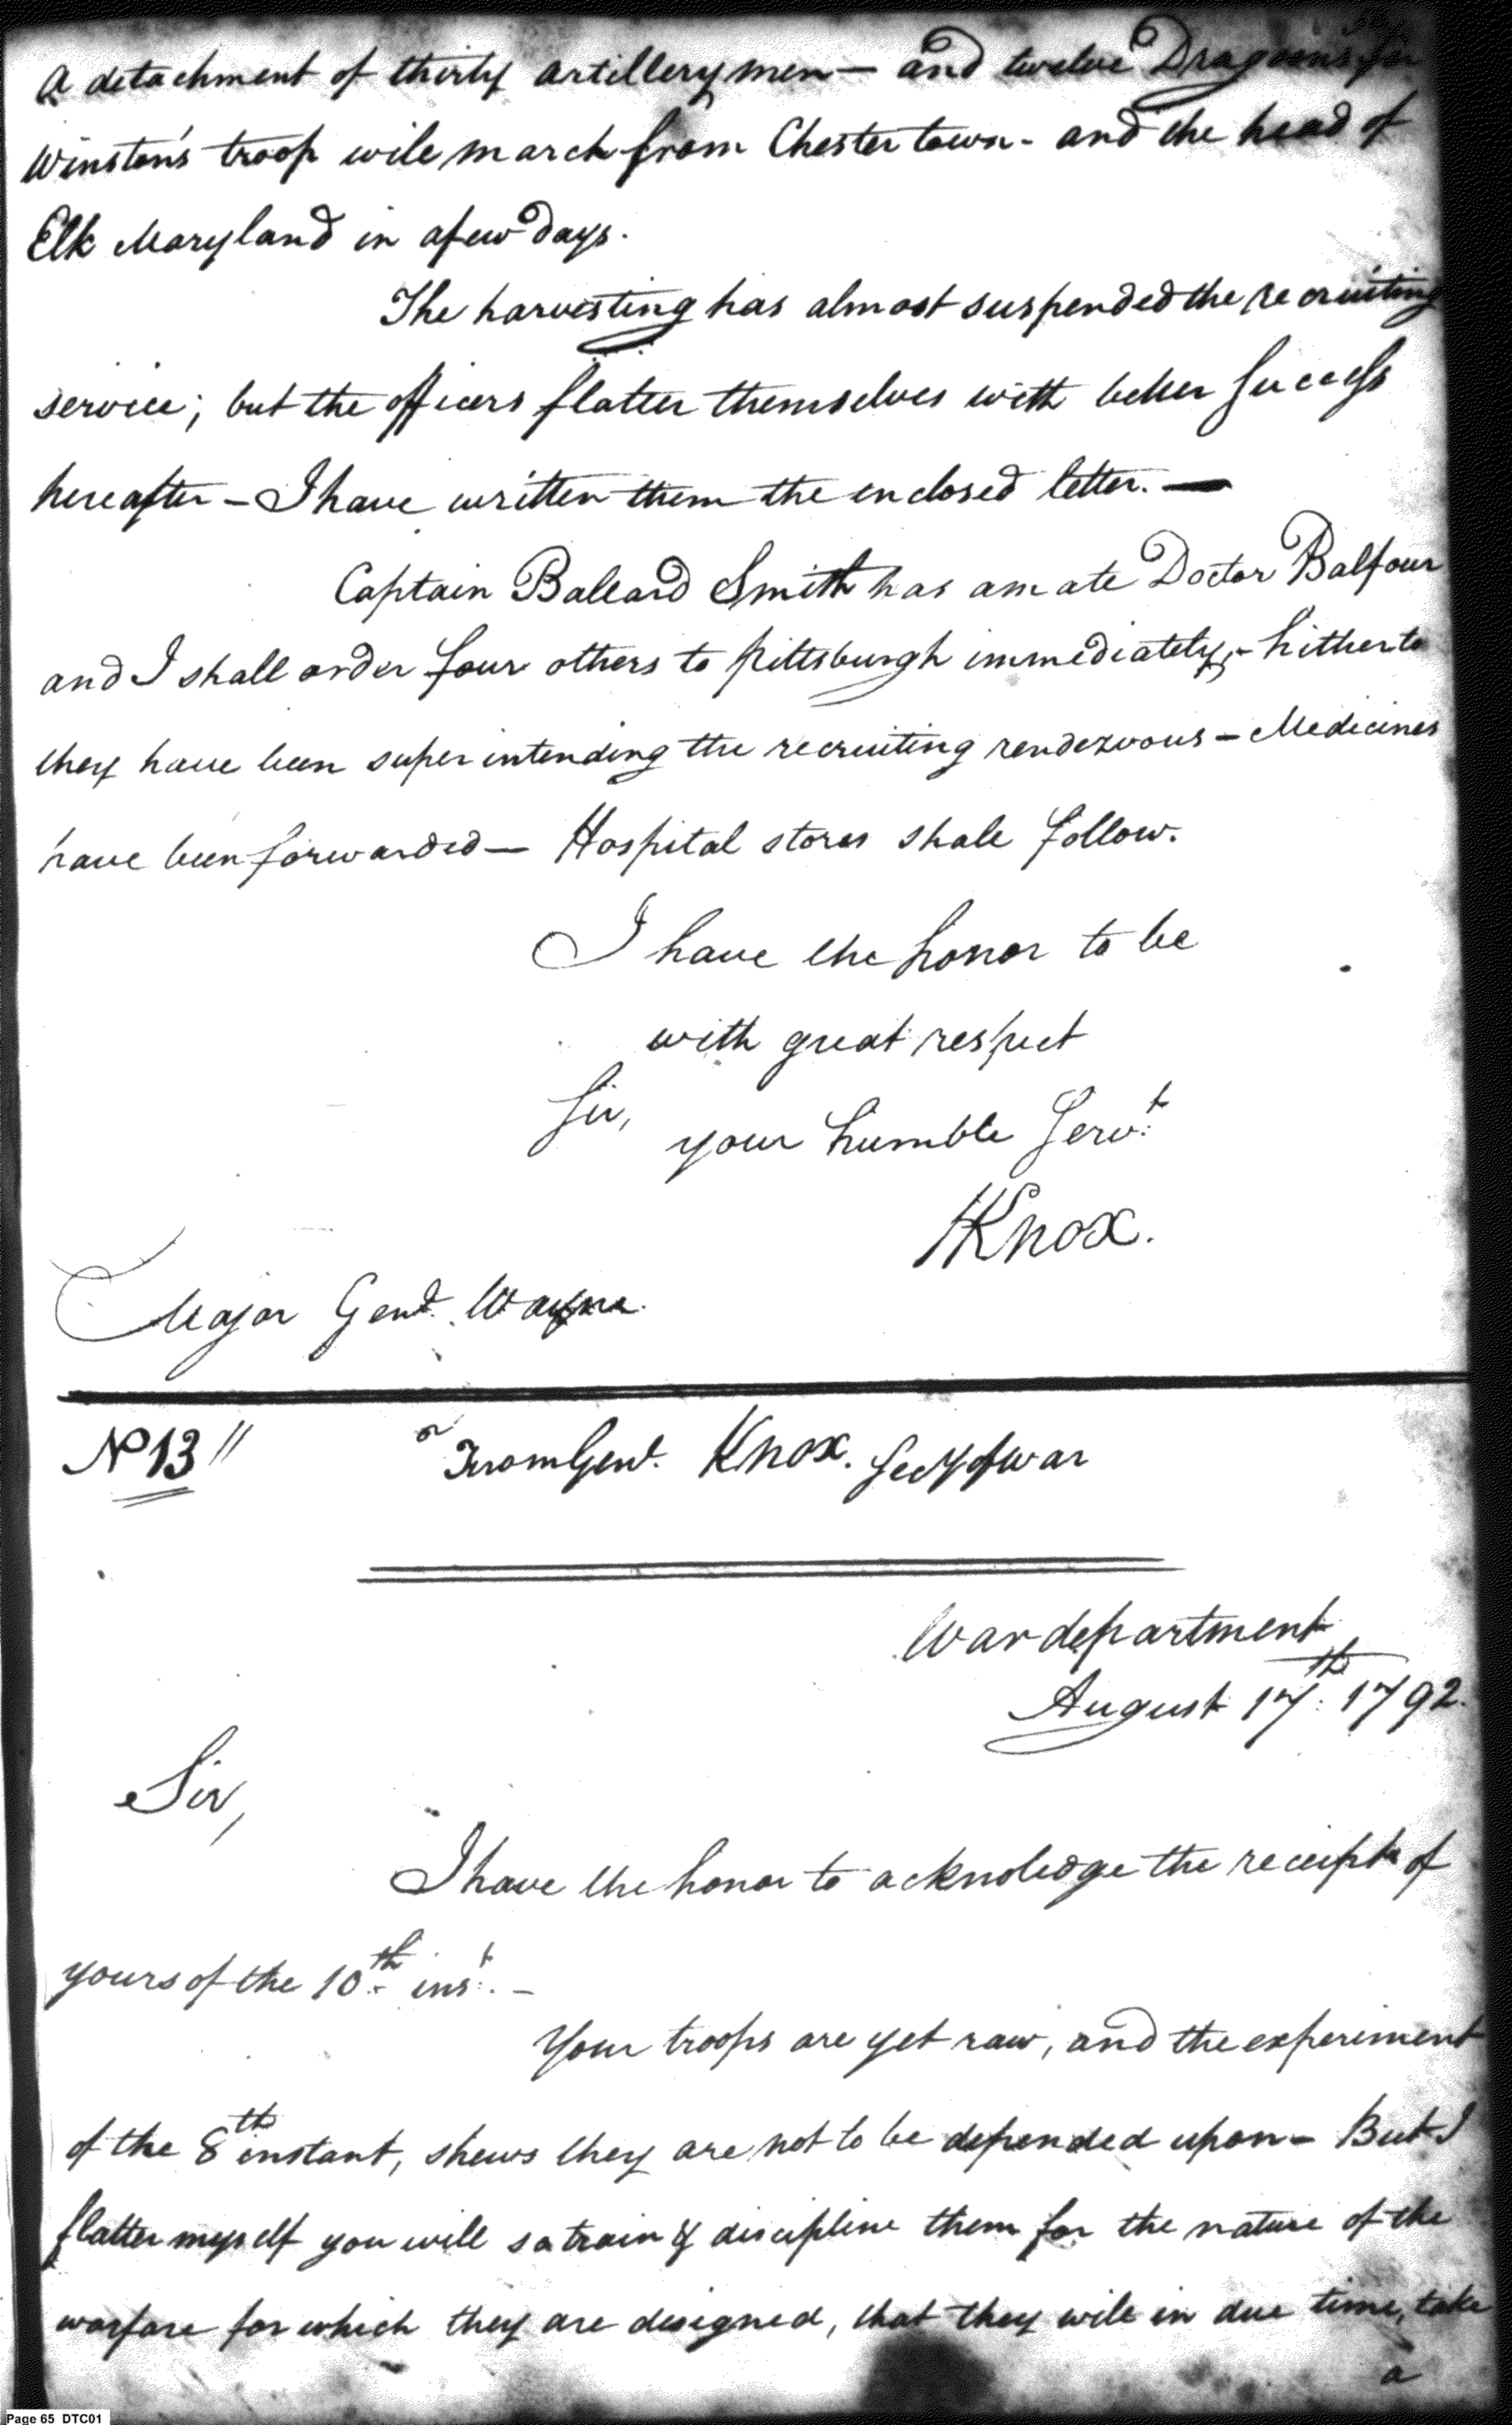 A detachment of thirty artillerymen — and twelve Dragoons for
Winston's troop will march from Chester town - and the head of
Elk Maryland in a few days.
The harvesting has almost suspended the recruiting
service; but the officers flatter themselves with better success
hereafter — I have written them the enclosed letter. —
Captain Ballard Smith has a mate Doctor Balfour
and I shall order four others to pittsburgh immediately, - hitherto
they have been superintending the recruiting rendezvous — Medicines
have been forwarded — Hospital stores shall follow.
I have the honor to be
with great respect
Sir,
your humble Servt.
HKnox.
Major Genl. Wayne.
No 13 //
From Genl. Knox. Secy of war
War department
August 17th: 1792.
Sir,
I have the honor to acknoledge the receipt of
yours of the 10th inst. —
Your troops are yet raw, and the experiment
of the 8th instant, shews they are not to be depended upon — But I
flatter myself you will so train & discipline them for the nature of the
warfare for which they are designed, that they will in due time, take
a
Page 65 DTC01